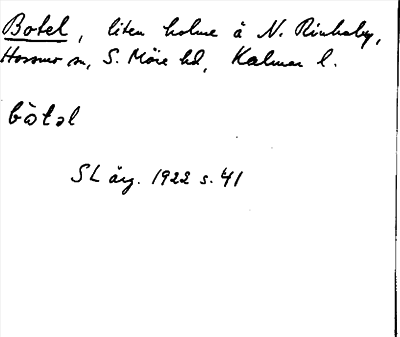 Botel, liten holme å N. Rinkaby,
Hossmo sn, S. Möre hd, Kalmar l.
bòtəl
SL årg. 1922 s. 41